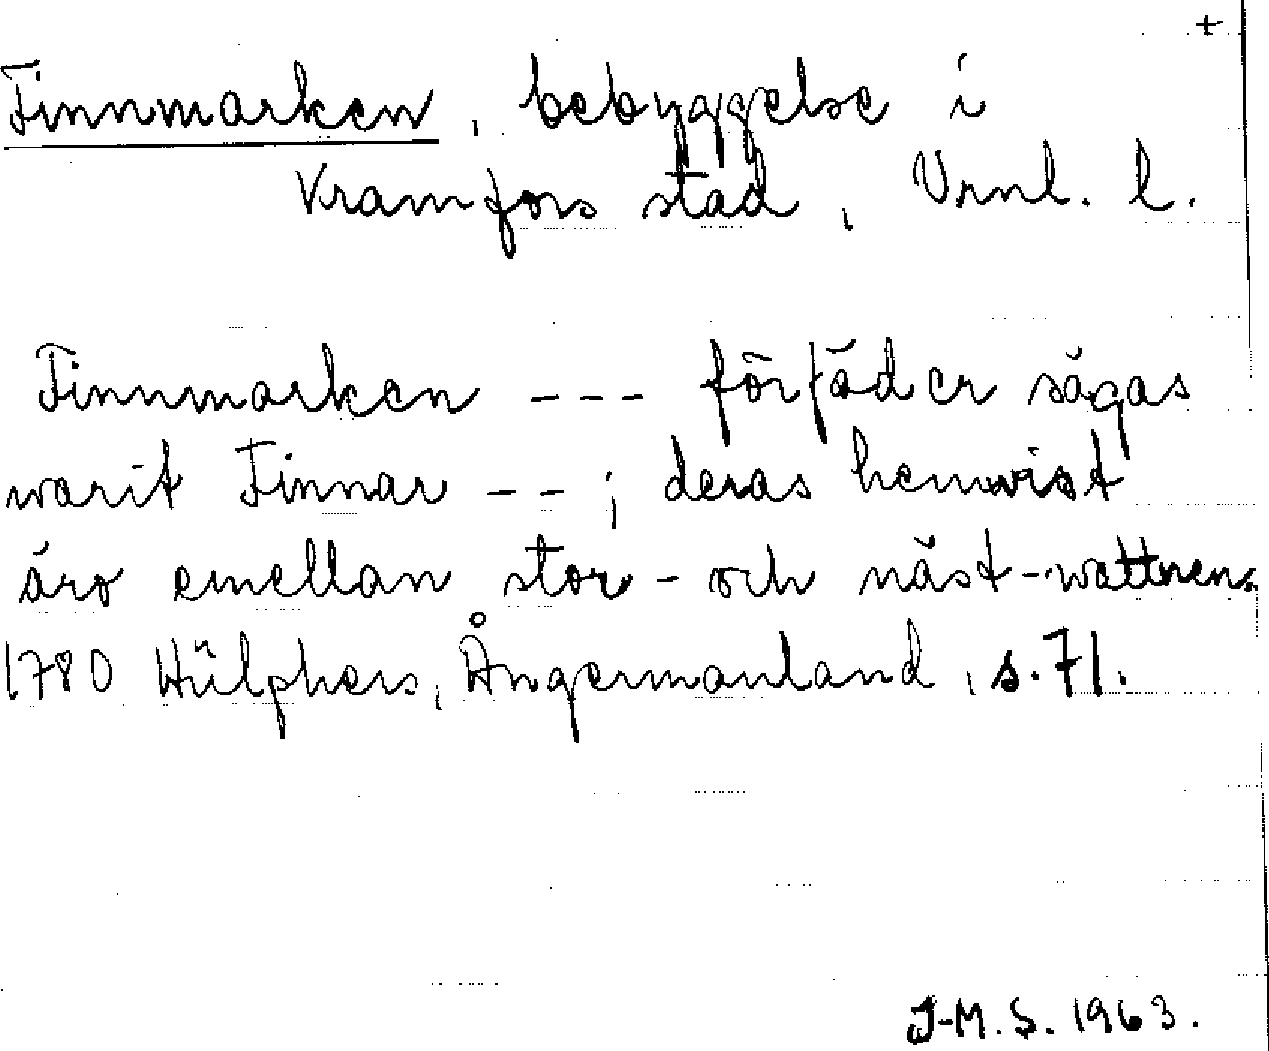 +
Finnmarken, bebyggelse i
Kramfors stad, Vrnl. l.
Finnmarken --- förfäder sägas
warit Finnar --; deras hemvist
äro emellan stor- och näst-wattnen.
1780 Hülphers, Ångermanland, s. 71.
J-M. S. 1963.